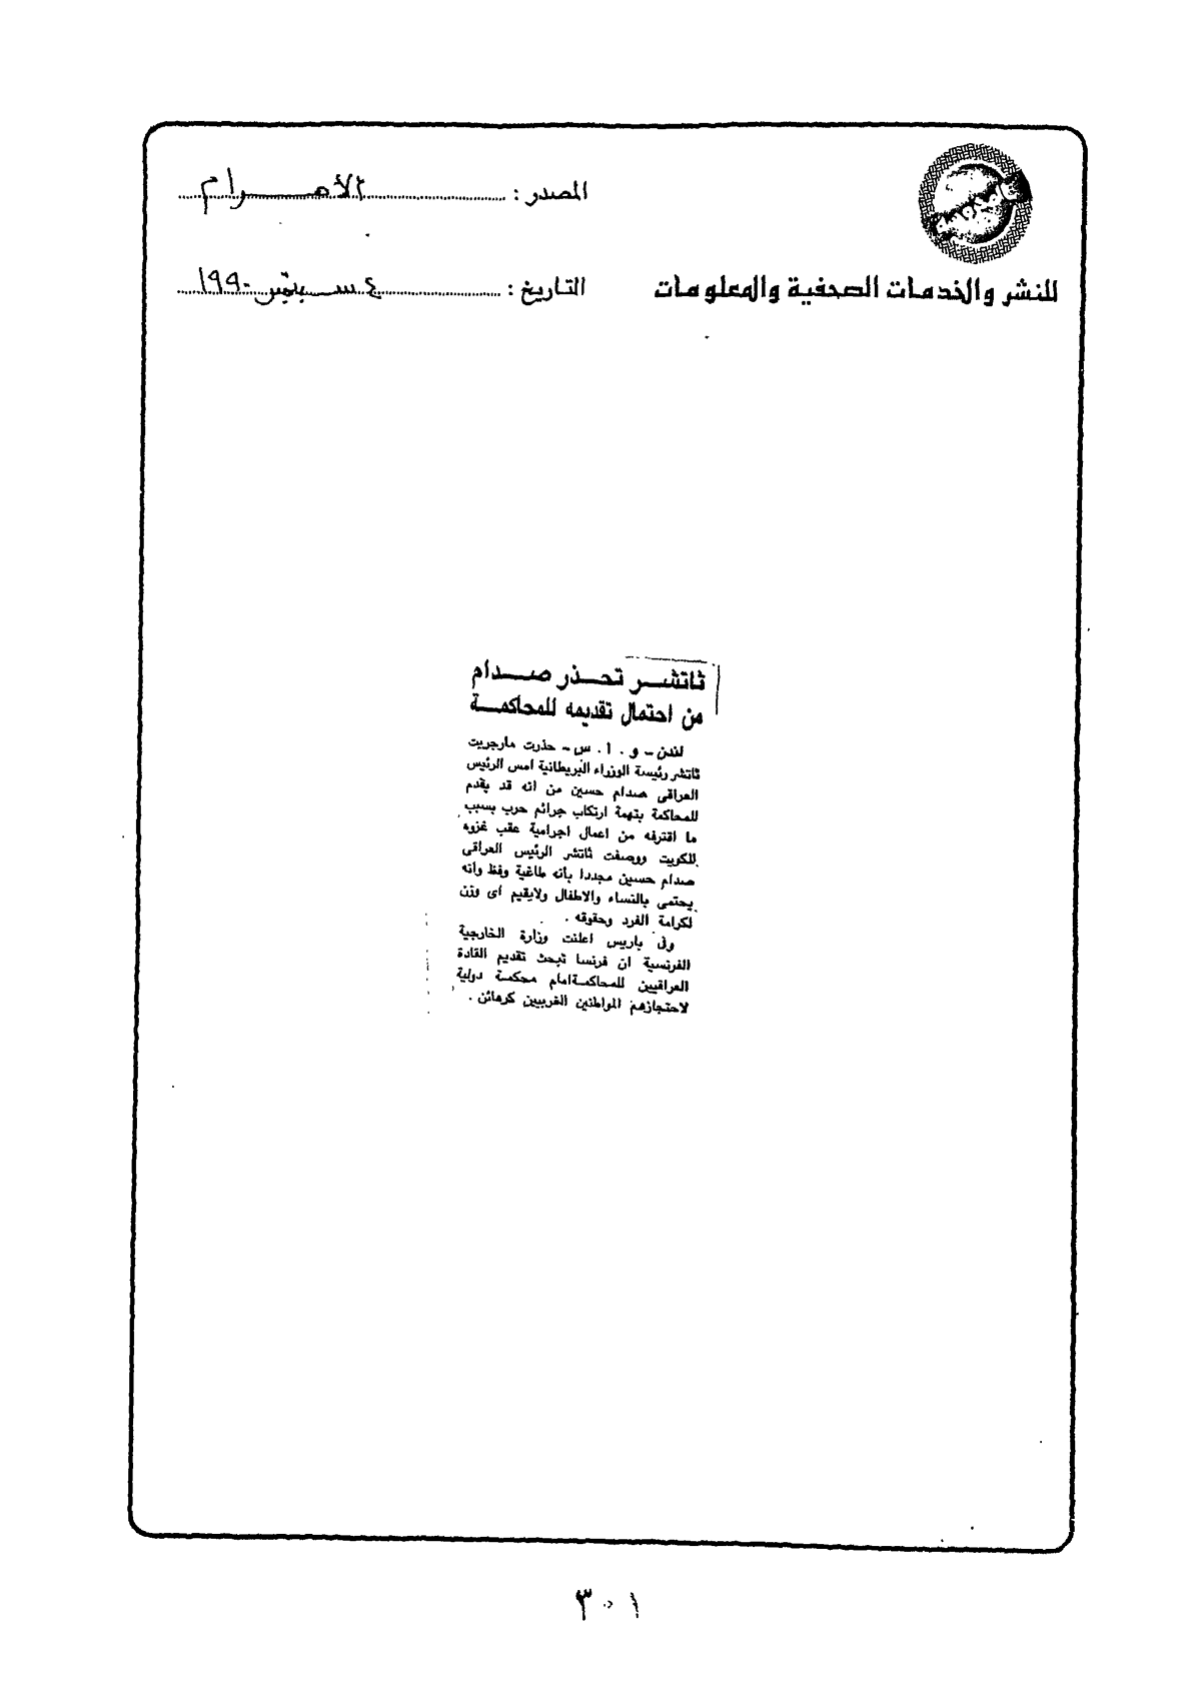 المصدر : الأهرام
للنشر والخدمات الصحفية والمعلومات
التاريخ : ٤ سبتمبر ١٩٩٠
ثاتشر تحذر صدام
من احتمال تقديمه للمحاكمة
لندن - و . ا . س - حذرت مارجريت
ثاتشر رئيسة الوزراء البريطانية امس الرئيس
العراقى صدام حسين من انه قد يقدم
للمحاكمة بتهمة ارتكاب جرائم حرب بسبب
ما اقترفه من اعمال اجرامية عقب غزوه
للكويت ووصفت ثاتشر الرئيس العراقى
صدام حسين مجددا بأنه طاغية وفظ وأنه
يحتمى بالنساء والاطفال ولايقيم اى وزن
لكرامة الفرد وحقوقه .
وفى باريس اعلنت وزارة الخارجية
الفرنسية ان فرنسا تبحث تقديم القادة
العراقيين للمحاكمة امام محكمة دولية
لاحتجازهم المواطنين الغربيين كرهائن .
٣٠١